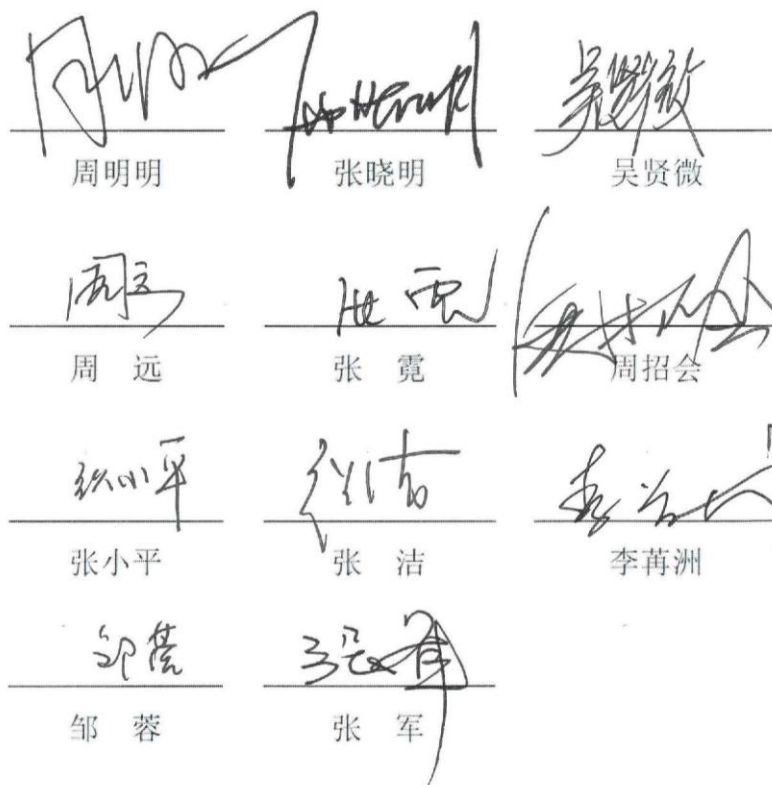 周明明 张晓明 吴贤微
周远 张霓 周招会
张小平 张洁 李苒洲
邹蓉 张军